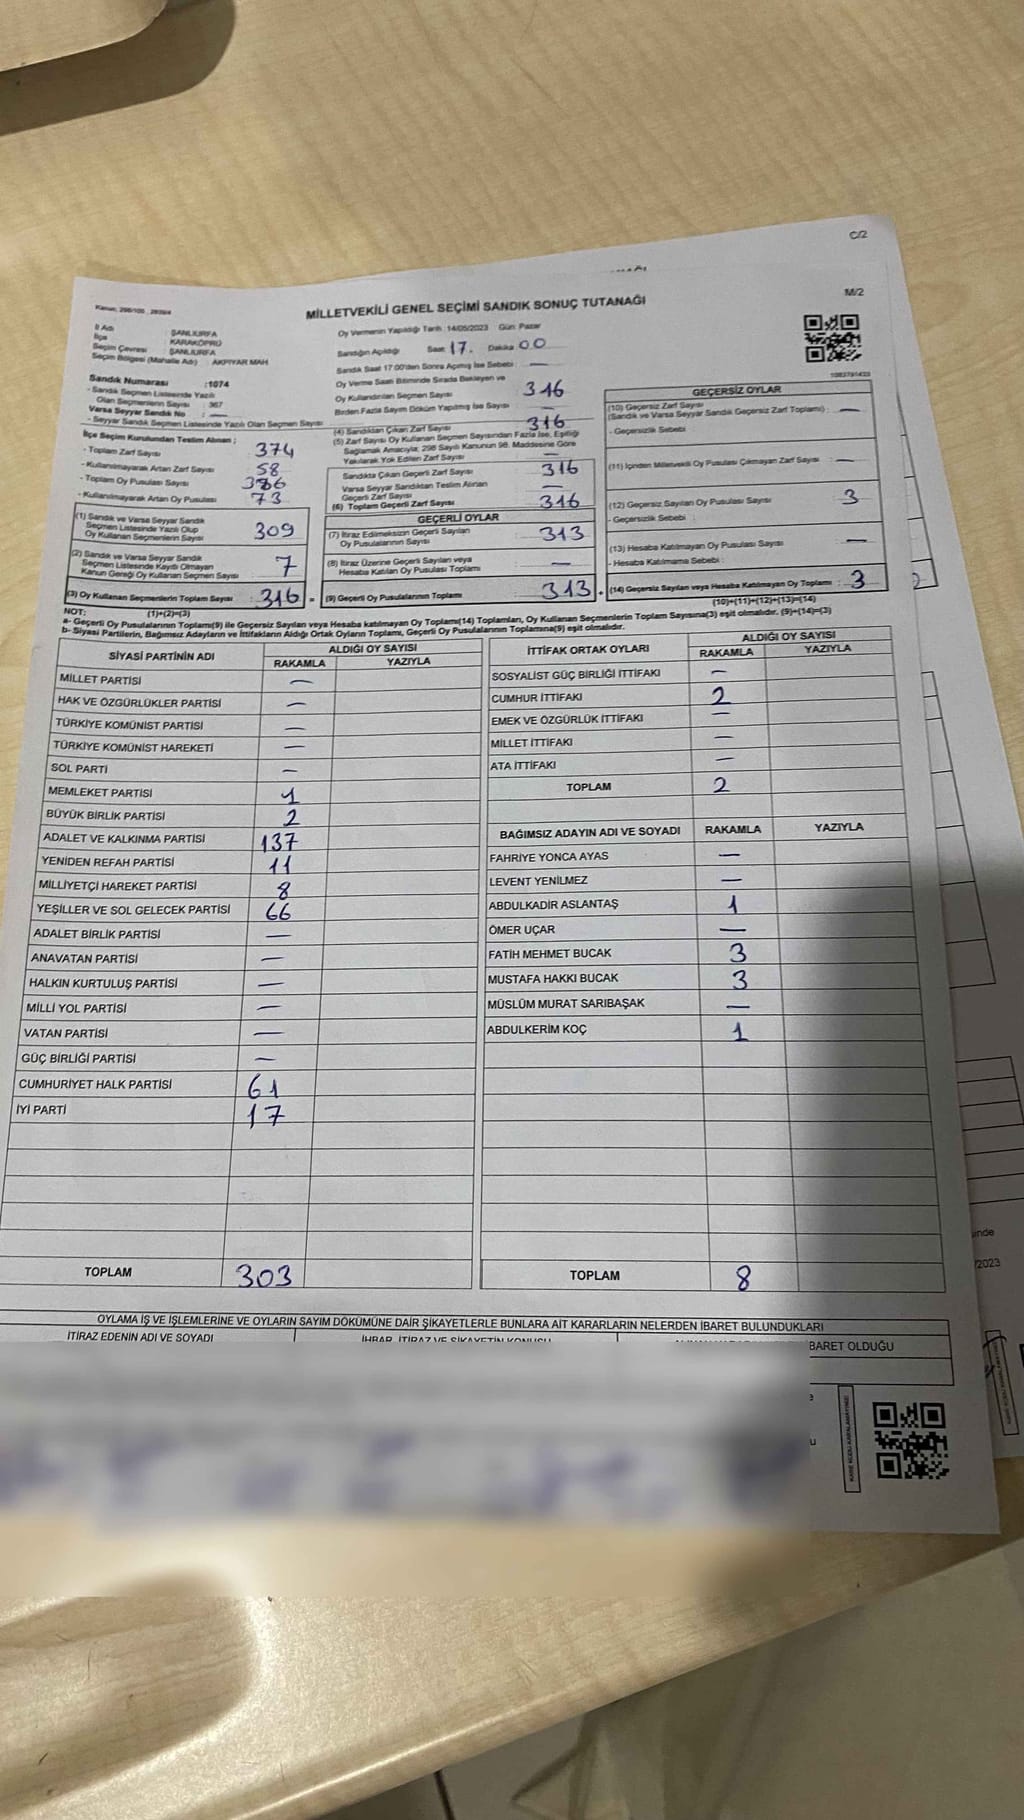 C/2
M/2
MİLLETVEKİLİ GENEL SEÇİMİ SANDIK SONUÇ TUTANAĞI
İl Adı : ŞANLIURFA
İlçe : KARAKÖPRÜ
Seçim Çevresi : ŞANLIURFA
Seçim Bölgesi (Mahalle Adı) : AKPIYAR MAH
Sandık Numarası :1074
- Sandık Seçmen Listesinde Yazılı
Olan Seçmenlerin Sayısı : 367
Varsa Seyyar Sandık No : —
- Seyyar Sandık Seçmen Listesinde Yazılı Olan Seçmen Sayısı
Oy Vermenin Yapıldığı Tarih :14/05/2023 Gün: Pazar
Sandığın Açıldığı Saat: 17. Dakika 00
Sandık Saat 17.00'den Sonra Açılmış İse Sebebi : —
Oy Verme Saati Bitiminde Sırada Bekleyen ve
Oy Kullandırılan Seçmen Sayısı 316
Birden Fazla Sayım Döküm Yapılmış İse Sayısı : —
İlçe Seçim Kurulundan Teslim Alınan ;
- Toplam Zarf Sayısı 374
- Kullanılmayarak Artan Zarf Sayısı 58
- Toplam Oy Pusulası Sayısı 386
- Kullanılmayarak Artan Oy Pusulası 73
(1) Sandık ve Varsa Seyyar Sandık
Seçmen Listesinde Yazılı Olup
Oy Kullanan Seçmenlerin Sayısı 309
(2) Sandık ve Varsa Seyyar Sandık
Seçmen Listesinde Kayıtlı Olmayan
Kanun Gereği Oy Kullanan Seçmen Sayısı : 7
(3) Oy Kullanan Seçmenlerin Toplam Sayısı : 316 =
(1)+(2)=(3)
(4) Sandıktan Çıkan Zarf Sayısı 316
(5) Zarf Sayısı Oy Kullanan Seçmen Sayısından Fazla İse, Eşitliği
Sağlamak Amacıyla; 298 Sayılı Kanunun 98. Maddesine Göre
Yakılarak Yok Edilen Zarf Sayısı —
Sandıkta Çıkan Geçerli Zarf Sayısı 316
Varsa Seyyar Sandıktan Teslim Alınan
Geçerli Zarf Sayısı —
(6) Toplam Geçerli Zarf Sayısı 316
GEÇERLİ OYLAR
(7) İtiraz Edilmeksizin Geçerli Sayılan
Oy Pusulalarının Sayısı 313
(8) İtiraz Üzerine Geçerli Sayılan veya
Hesaba Katılan Oy Pusulası Toplamı —
(9) Geçerli Oy Pusulalarının Toplamı 313
GEÇERSİZ OYLAR
(10) Geçersiz Zarf Sayısı
(Sandık ve Varsa Seyyar Sandık Geçersiz Zarf Toplamı) : —
- Geçersizlik Sebebi :
(11) İçinden Milletvekili Oy Pusulası Çıkmayan Zarf Sayısı : —
(12) Geçersiz Sayılan Oy Pusulası Sayısı : 3
- Geçersizlik Sebebi :
(13) Hesaba Katılmayan Oy Pusulası Sayısı : —
- Hesaba Katılmama Sebebi :
(14) Geçersiz Sayılan veya Hesaba Katılmayan Oy Toplamı : 3
(10)+(11)+(12)+(13)=(14)
NOT:
a- Geçerli Oy Pusulalarının Toplamı(9) ile Geçersiz Sayılan veya Hesaba Katılmayan Oy Toplamı(14) Toplamları, Oy Kullanan Seçmenlerin Toplam Sayısına(3) eşit olmalıdır. (9)+(14)=(3)
b- Siyasi Partilerin, Bağımsız Adayların ve İttifakların Aldığı Ortak Oyların Toplamı, Geçerli Oy Pusulalarının Toplamına(9) eşit olmalıdır.
SİYASİ PARTİNİN ADI ALDIĞI OY SAYISI
RAKAMLA YAZIYLA
MİLLET PARTİSİ —
HAK VE ÖZGÜRLÜKLER PARTİSİ —
TÜRKİYE KOMÜNİST PARTİSİ —
TÜRKİYE KOMÜNİST HAREKETİ —
SOL PARTİ —
MEMLEKET PARTİSİ 1
BÜYÜK BİRLİK PARTİSİ 2
ADALET VE KALKINMA PARTİSİ 137
YENİDEN REFAH PARTİSİ 11
MİLLİYETÇİ HAREKET PARTİSİ 8
YEŞİLLER VE SOL GELECEK PARTİSİ 66
ADALET BİRLİK PARTİSİ —
ANAVATAN PARTİSİ —
HALKIN KURTULUŞ PARTİSİ —
MİLLİ YOL PARTİSİ —
VATAN PARTİSİ —
GÜÇ BİRLİĞİ PARTİSİ —
CUMHURİYET HALK PARTİSİ 61
İYİ PARTİ 17
TOPLAM 303
İTTİFAK ORTAK OYLARI ALDIĞI OY SAYISI
RAKAMLA YAZIYLA
SOSYALİST GÜÇ BİRLİĞİ İTTİFAKI —
CUMHUR İTTİFAKI 2
EMEK VE ÖZGÜRLÜK İTTİFAKI —
MİLLET İTTİFAKI —
ATA İTTİFAKI —
TOPLAM 2
BAĞIMSIZ ADAYIN ADI VE SOYADI RAKAMLA YAZIYLA
FAHRİYE YONCA AYAS —
LEVENT YENİLMEZ —
ABDULKADİR ASLANTAŞ 1
ÖMER UÇAR —
FATİH MEHMET BUCAK 3
MUSTAFA HAKKI BUCAK 3
MÜSLÜM MURAT SARIBAŞAK —
ABDULKERİM KOÇ 1
TOPLAM 8
OYLAMA İŞ VE İŞLEMLERİNE VE OYLARIN SAYIM DÖKÜMÜNE DAİR ŞİKAYETLERLE BUNLARA AİT KARARLARIN NELERDEN İBARET BULUNDUKLARI
İTİRAZ EDENİN ADI VE SOYADI İHBAR, İTİRAZ VE ŞİKAYETİN KONUSU
BARET OLDUĞU
inde
/2023